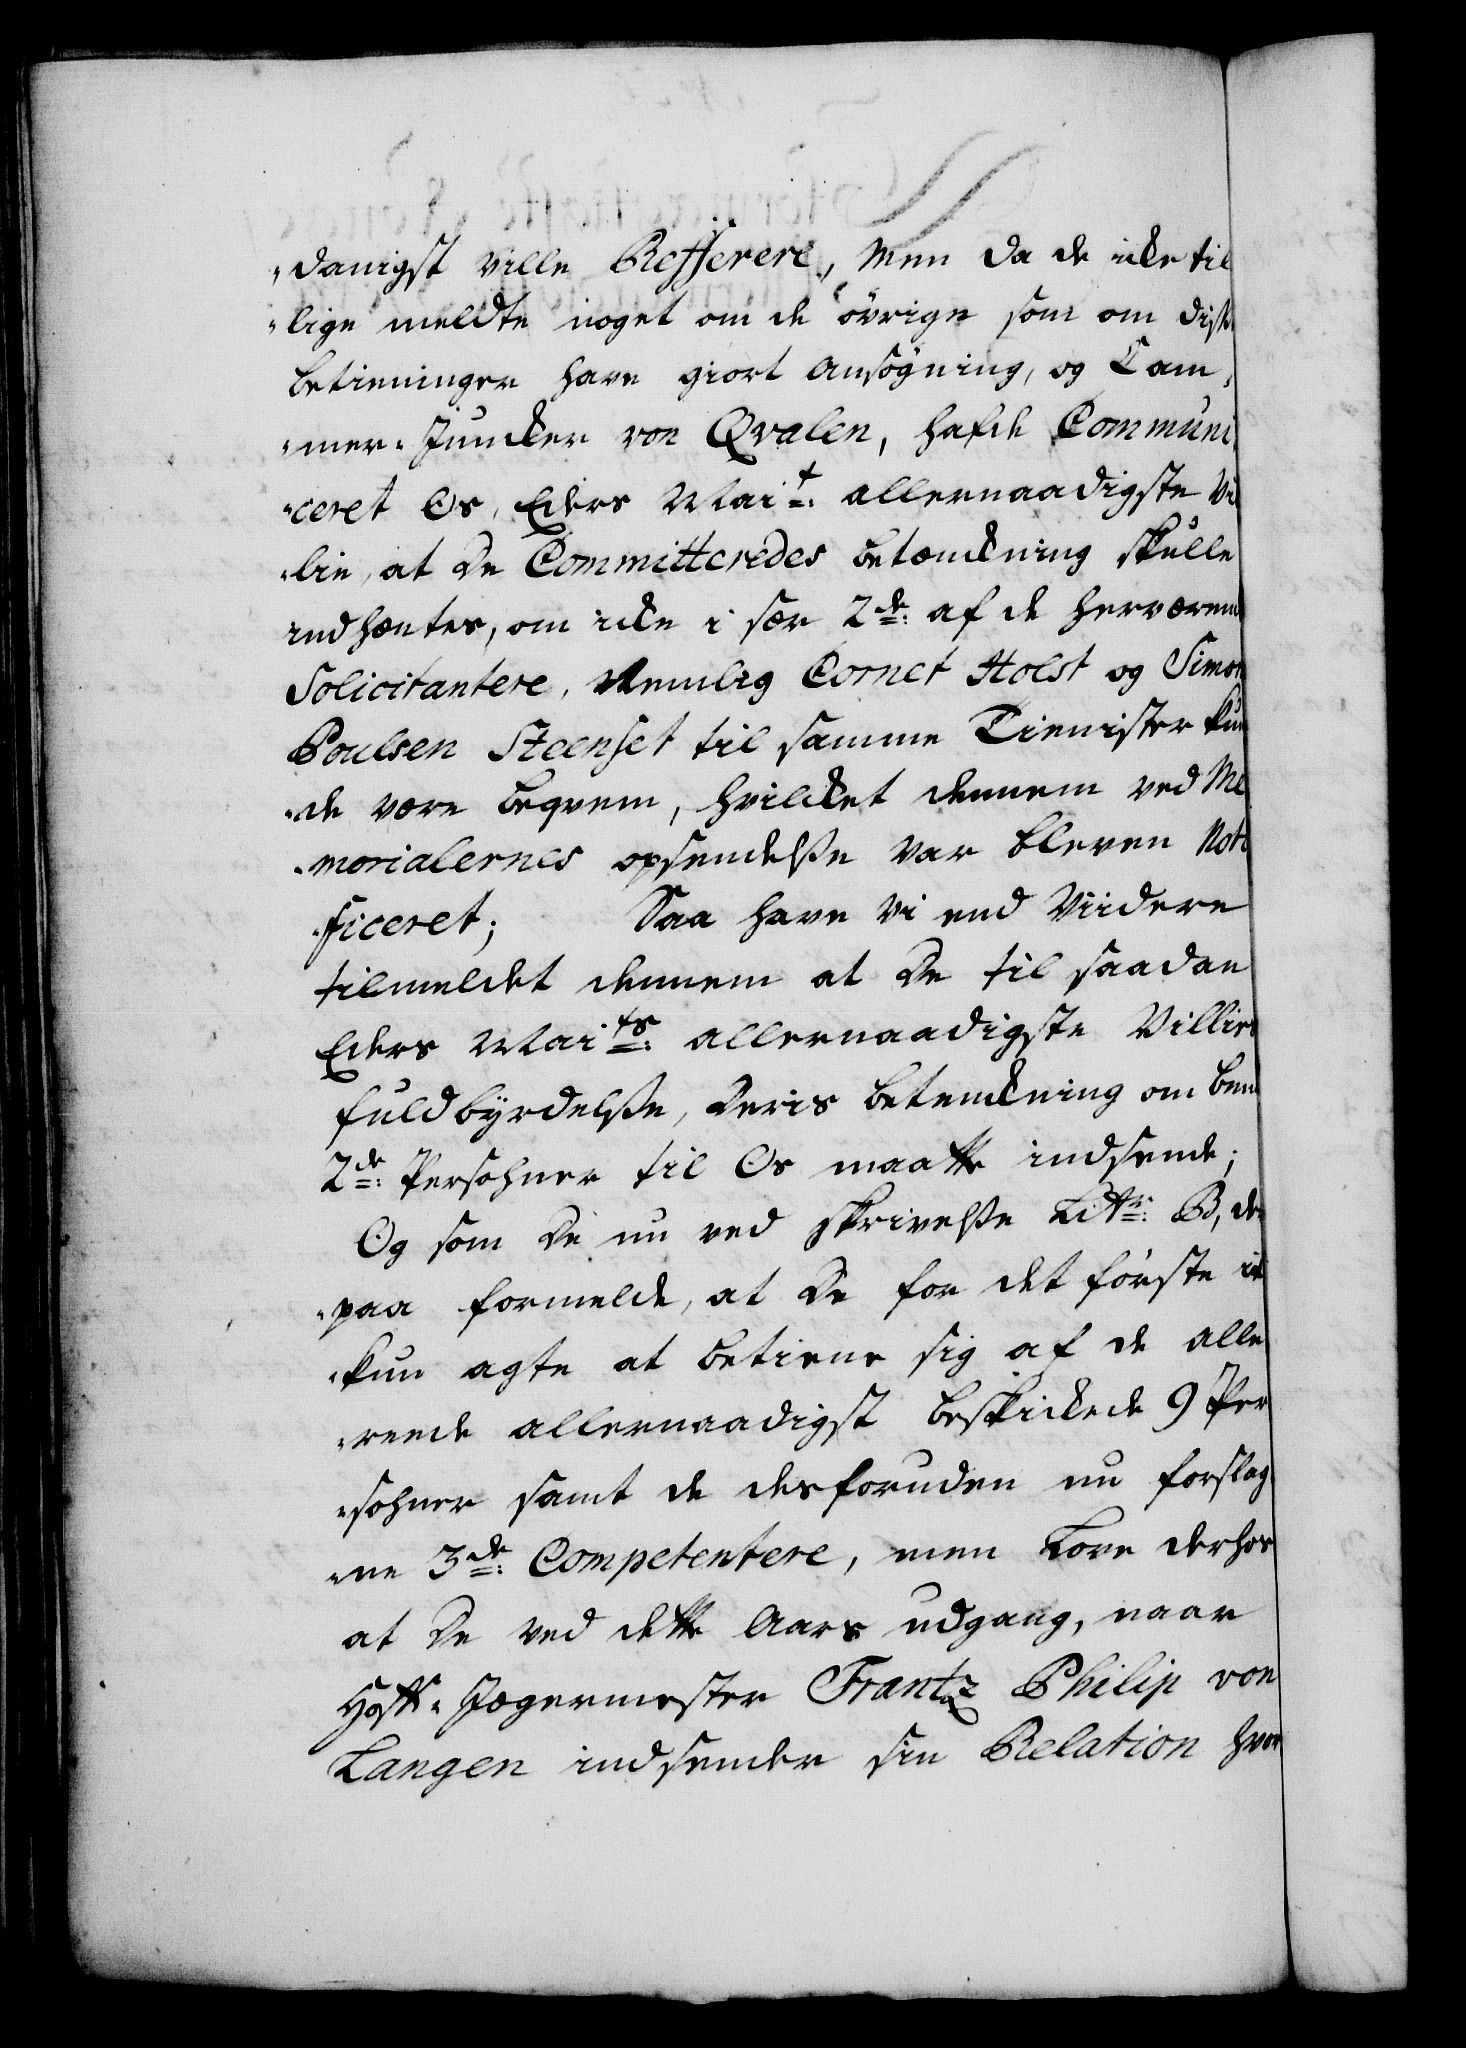 danigst ville Refferere, Men da de icke til
lige meldte noget om de övrige som om disse
betieninger have giort Ansögning, og Cam-
mer-Juncker von Qvalen, hafde Communi
ceret Os, Eders Mai.t allernaadigste Vil
lie, at De Committeredes betænckning skulle
indhæntes, om icke i sær 2de af de herværende
Solicitantere, Nemlig Cornet Holst og Simon
Poulsen Steenset til samme Tienister kun
de være beqvem, hvilcket dennem ved Me
morialernes opsendelße var bleven Noti
ficeret; Saa have Vi end Viidere
tilmeldet dennem at De til saadan
Eders Mai.ts allernaadigste Villies
fuldbyrdelße, Deris betenckning om bem.te
2de Persohner til Os maatte indsende;
Og som De nu ved skrivelße Litr. B, der
paa formelde, at De for det förste ik
kun agte at betiene sig af de alle
reede allernaadigst beskickede 9 Per
sohner samt de desforuden nu forslag
ne 3de Competentere, men Love derhos
at De ved dette Aars udgang, naar
Hoff-Jægermester Frantz Philip von
Langen indsender sin Relation hvor